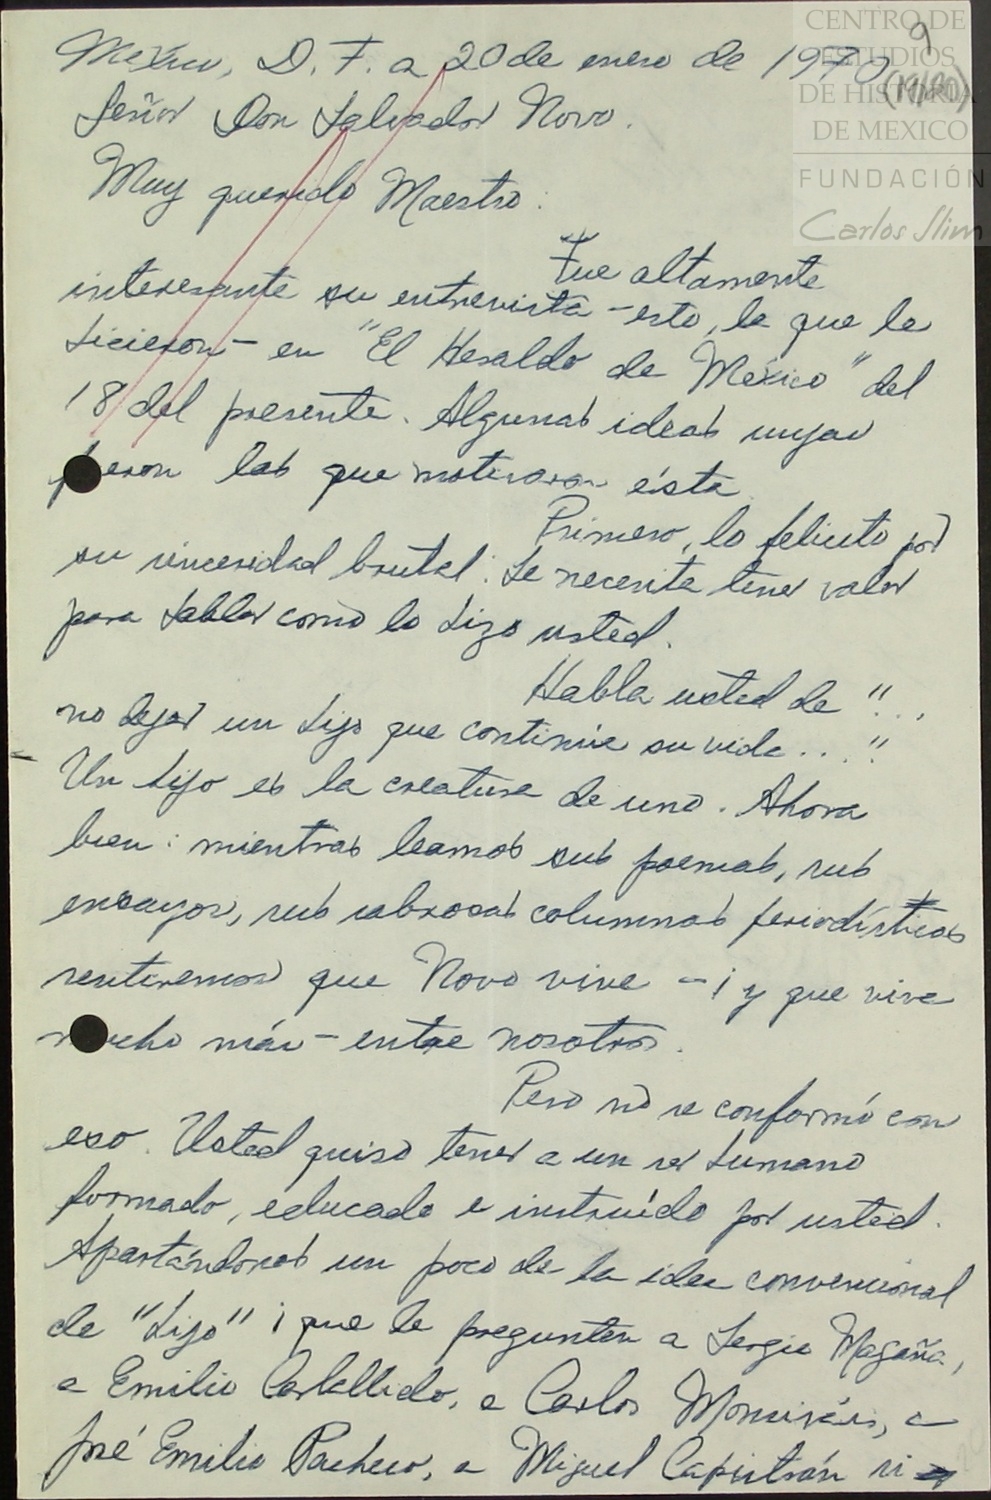 CENTRO DE
ESTUDIOS
DE HISTORIA
DE MEXICO
FUNDACIÓN
Carlos Slim
9
México, D. F. a 20 de enero de 1970
Señor Don Salvador Novo.
Muy querido Maestro:
Fue altamente
interesante su entrevista - esto, la que le
hicieron - en "El Heraldo de México" del
18 del presente. Algunas ideas suyas
fueron las que motivaron ésta.
Primero, lo felicito por
su sinceridad brutal. Se necesita tener valor
para hablar como lo hizo usted.
Habla usted de "...
no dejar un hijo que continúe su vida..."
Un hijo es la creatura de uno. Ahora
bien: mientras leamos sus poemas, sus
ensayos, sus sabrosas columnas periodísticas
sentiremos que Novo vive - ¡y que vive
mucho más - entre nosotros.
Pero no se conformó con
eso. Usted quiso tener a un ser humano
formado, educado e instruído por usted.
Apartándonos un poco de la idea convencional
de "hijo" ¡que le pregunten a Sergio Magaña,
a Emilio Carballido, a Carlos Monsiváis, a
José Emilio Pacheco, a Miguel Capistrán si